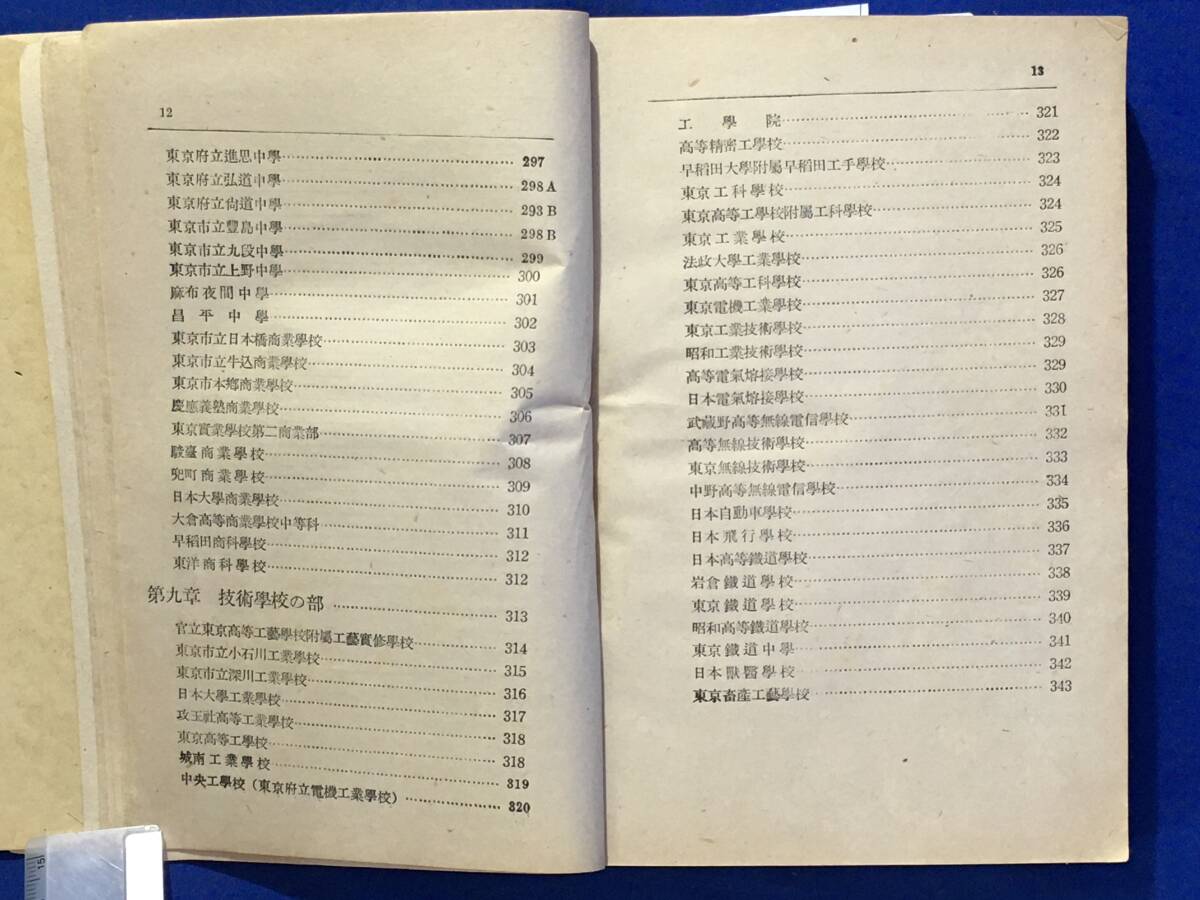 12
東京府立進思中學 297
東京府立弘道中學 298A
東京府立尙道中學 293B
東京市立豐島中學 298B
東京市立九段中學 299
東京市立上野中學 300
麻布夜間中學 301
昌平中學 302
東京市立日本橋商業學校 303
東京市立牛込商業學校 304
東京市本鄉商業學校 305
慶應義塾商業學校 306
東京實業學校第二商業部 307
駿臺商業學校 308
兜町商業學校 309
日本大學商業學校 310
大倉高等商業學校中等科 311
早稻田商科學校 312
東洋商科學校 312
第九章 技術學校の部 313
官立東京高等工藝學校附屬工藝實修學校 314
東京市立小石川工業學校 315
東京市立深川工業學校 316
日本大學工業學校 317
政王社高等工業學校 318
東京高等工學校 318
城南工業學校 319
中央工學校(東京府立電機工業學校) 320
13
工學院 321
高等精密工學校 322
早稻田大學附屬早稻田工手學校 323
東京工科學校 324
東京高等工學校附屬工科學校 324
東京工業學校 325
法政大學工業學校 326
東京高等工科學校 326
東京電機工業學校 327
東京工業技術學校 328
昭和工業技術學校 329
高等電氣熔接學校 329
日本電氣熔接學校 330
武藏野高等無線電信學校 331
高等無線技術學校 332
東京無線技術學校 333
中野高等無線電信學校 334
日本自動車學校 335
日本飛行學校 336
日本高等鐵道學校 337
岩倉鐵道學校 338
東京鐵道學校 339
昭和高等鐵道學校 340
東京鐵道中學 341
日本獸醫學校 342
東京畜產工藝學校 343
15